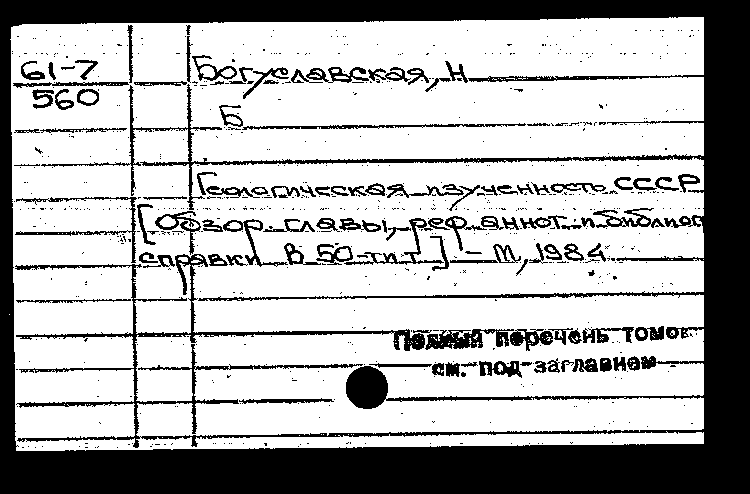 61-7
560
Богуславская, Н
Б
Геологическая изученность СССР
[Обзор. главы, реф. аннот. и библиог
справки В 50-ти т] - М, 1984
Полный перечень томов
см. под заглавием